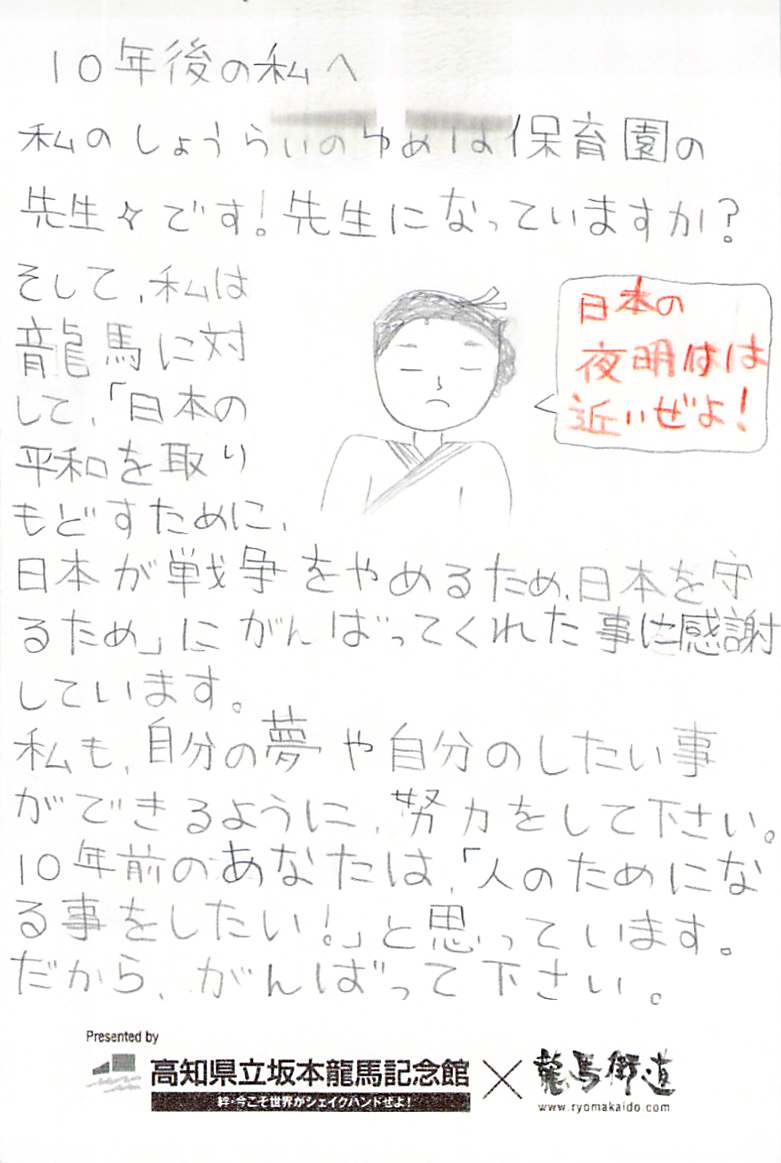 10年後の私へ
私のしょうらいのゆめは保育園の
先生☆です!先生になっていますか?
そして、私は
龍馬に対
して、「日本の
平和を取り
もどすために、
日本の
夜明けは
近いぜよ!
日本が戦争をやめるため、日本を守
るため」にがんばってくれた事に感謝
しています。
私も、自分の夢や自分のしたい事
ができるように、努力をして下さい。
10年前のあなたは、「人のためにな
る事をしたい!」と思っています。
だから、がんばって下さい。
Presented by
高知県立坂本龍馬記念館×龍馬街道
絆・今こそ世界がシェイクハンドぜよ!
www.ryomakaido.com